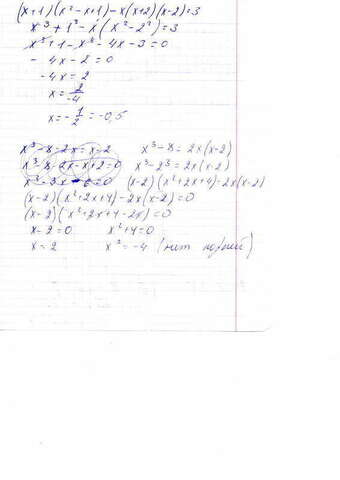 (x+1)(x²-x+1)-x(x+2)(x-2)=3
x³+1³-x(x²-2²)=3
x³+1-x³-4x-3=0
-4x-2=0
-4x=2
x=2/-4
x=-1/2=-0,5
x³-8-2x=x-2 x³-8=2x(x-2)
x³-8-2x-x+2=0 x³-2³=2x(x-2)
x³-3x-6=0 (x-2)(x²+2x+4)-2x(x-2)
(x-2)(x²+2x+4)-2x(x-2)=0
(x-2)(x²+2x+4-2x)=0
x-2=0 x²+4=0
x=2 x²=-4 (нет корней)